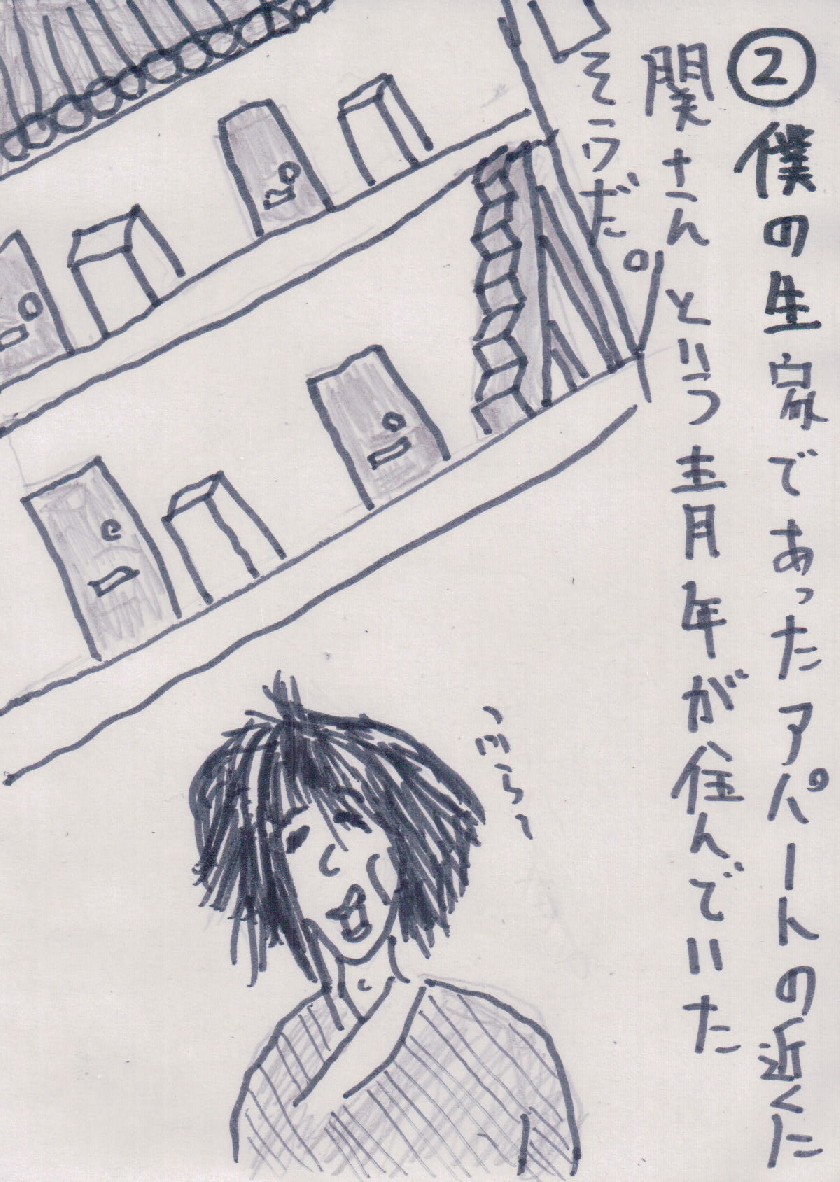 ②僕の生家であったアパートの近くに
関さんという青年が住んでいた
そうだ。